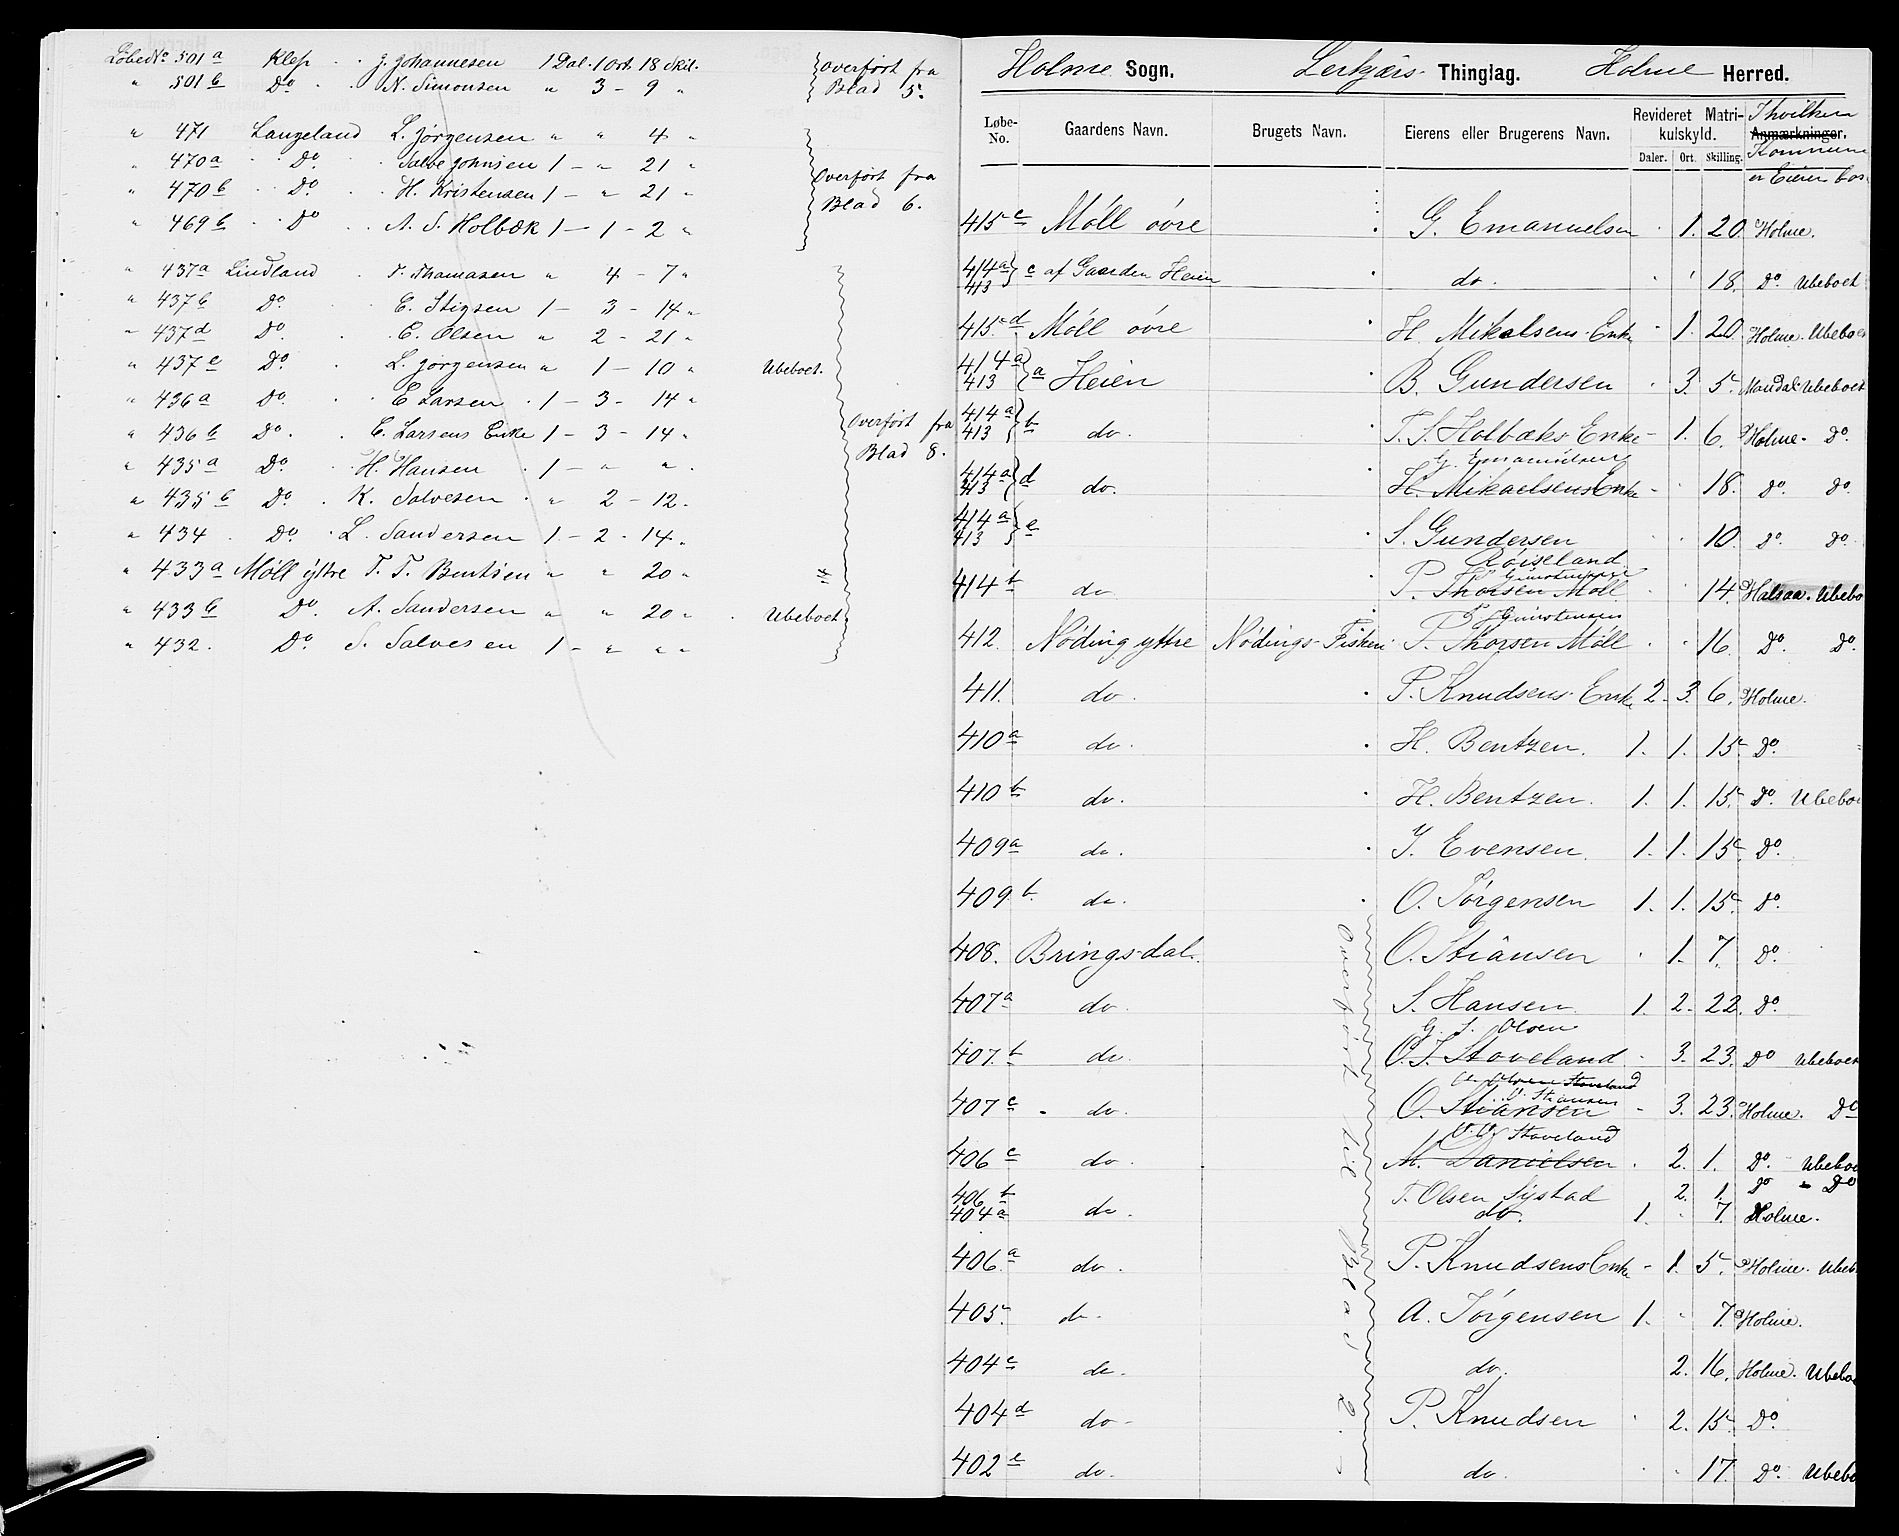 LøbeNo 501 a Klep J. Johannesen 1 Dal. 1 Ort. 18 Skil.
" 501 b Do. N. Simonsen " 3 - 9 "
Overført fra
Blad 5.
" 471 Langeland L. Jørgensen " " 4 "
" 470 a Do. Salve Johnsen 1 - " 21 "
" 470 b Do. H. Kristensen 1 - " 21 "
" 469 b Do A. S. Holbæk 1 - 1 - 2 "
Overført fra
Blad 6.
" 437 a Lindland T. Thomasen " 4 - 7 "
" 437 b Do. E. Stigsen 1 - 3 - 14 "
" 437 d Do. E. Olsen " 2 - 21 "
" 437 e Do. L. Jørgensen " 1 - 10 " Ubeboet.
" 436 a Do. E Larsen 1 - 3 - 14 "
" 436 b Do. E. Larsens Enke 1 - 3 - 14 "
" 435 a Do. H. Hansen 1 - " "
" 435 b Do. K. Salvesen " 2 - 12.
" 434 Do. L. Sandersen 1 - 2 - 14 "
" 433 a Møll ÿttre T. T. Bentsen " " 20 "
" 433 b Do. A. Sandersen " " 20 " Ubeboet.
" 432. Do S. Salvesen 1 - " " "
Overført fra
Blad 8.
Holme Sogn. Thinglag. Holme Herred.
Løbe-No. Gaardens Navn. Brugets Navn. Eierens eller Brugerens Navn. Revideret Matrikulskyld. Daler. Ort. Skilling. Anmærkninger.
I hvilken Kommune er Eieren bos
415 c Møll øvre G. Emanuelsen 1. 20. Holme.
414 a 413 } c af Gaarden Heien do. 18. Do. Ubeboet
415 d Møll øvre H. Mikalsens Enke 1. 20. Holme. Ubeboe
414 a 413 } a Heien B. Gundersen 3. 5. Mandal Ubeboet
414 a 413 } b do. T. S. Holbæks Enke 1. 6. Holme. Do.
G. Emanuelsen
414 a 413 } d do. H. Mikaelsens Enke 18. Do. Do.
414 a 413 } e S. Gundersen 10. Do. Do.
Røiseland
414 b do P. Thorsen Møll 14. Halsaa. Ubebo
412. Nøding yttre Nødings Fiskeri P. Thorsen Møll 16. Do. Do.
411. do. P. Knudsens Enke 2. 3. 6. Holme.
410 a do. H. Bentzen. 1. 1. 15. Do.
410 b do. H. Bentzen. 1. 1. 15. Do. Ubeboe
409 a do. Y. Evensen. 1. 1. 15. Do.
409 b. do. O. Jørgensen 1. 1. 15. Do.
408. Bringsdal. O. Stiansen 1. 7. Do.
407 a do. S. Hansen 1. 2. 22. Do.
G. S. Olsen
407. b do. O. T. Stoveland 3. 23. Do Ubeboet
O. Olsen Stoveland
O. Stiansen
407 c do. O. Stiansen 3. 23. Holme. Do
O. O. Stoveland
406 c do. M. Danielsen 2. 1. Do. Ubeboe
406 b T. Olsen Systad 2. 1. Do Do
404 a do. do. 1. 7. Holme.
406 a do. P. Knudsens Enke 1. 5. Holme. Ubeb
405. do. A. Jørgensen 1. 7. Holme.
404 c do. do. 2. 16. Holme. Ubeboe
404 d do P. Knudsen 2. 15. Do.
402 e do. do 17. Do. Ubebo
Overført til Blad 2.